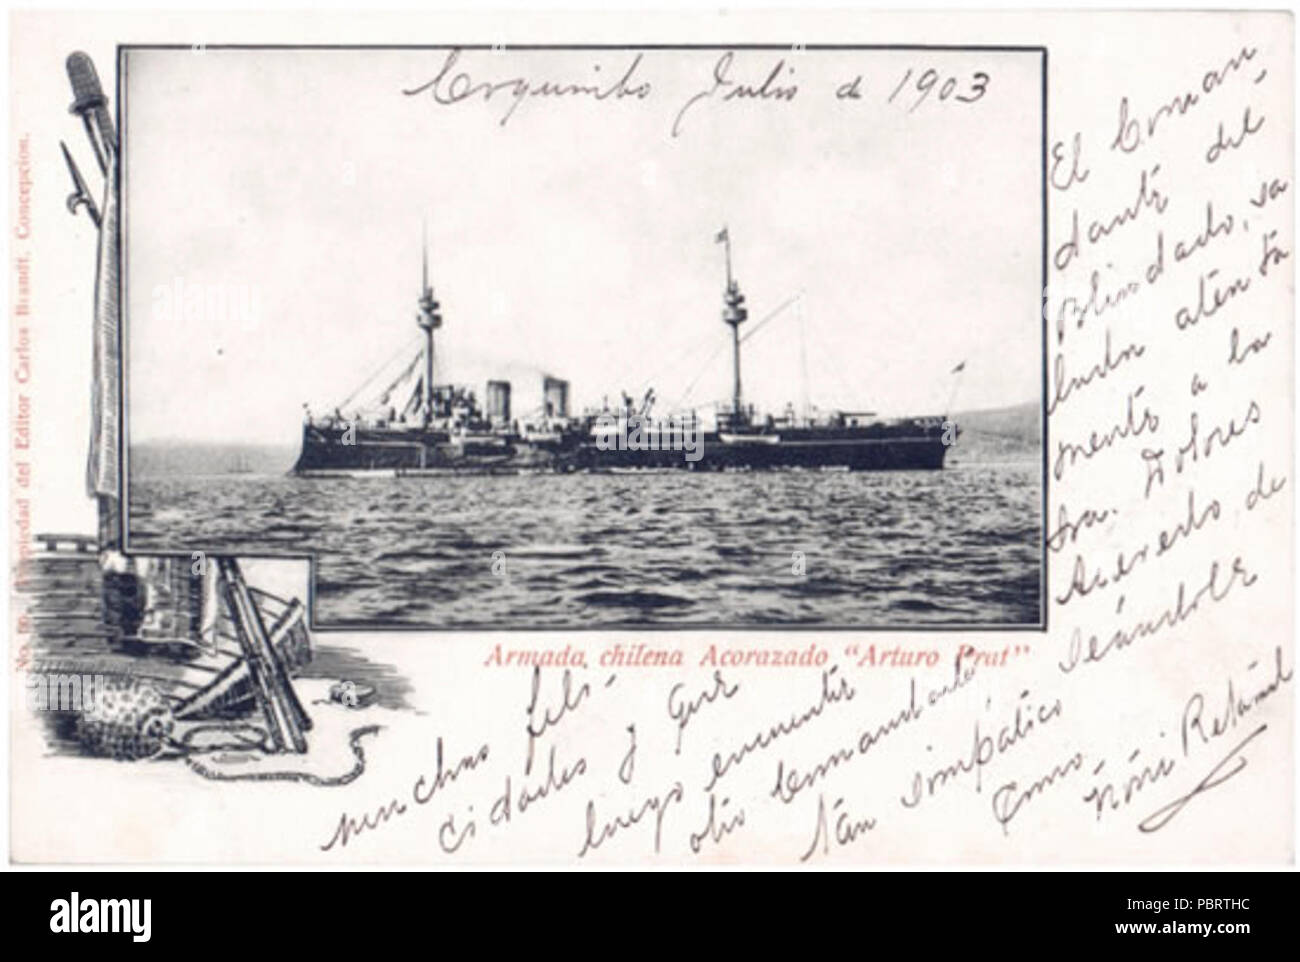 Coquimbo Julio de 1903
El Coman
dante del
Blindado, sa
luda atenta
mente a la
Sra. Dolores
Acevedo de
deseándole
muchas feli-
cidades y que
luego encuentre
otro Comandante
tan simpático
como.
No. 66. Propiedad del Editor Carlos Brandt, Concepcion.
Armada chilena Acorazado "Arturo Prat"
alamy
alamy
Image ID: PBRTHC
www.alamy.com